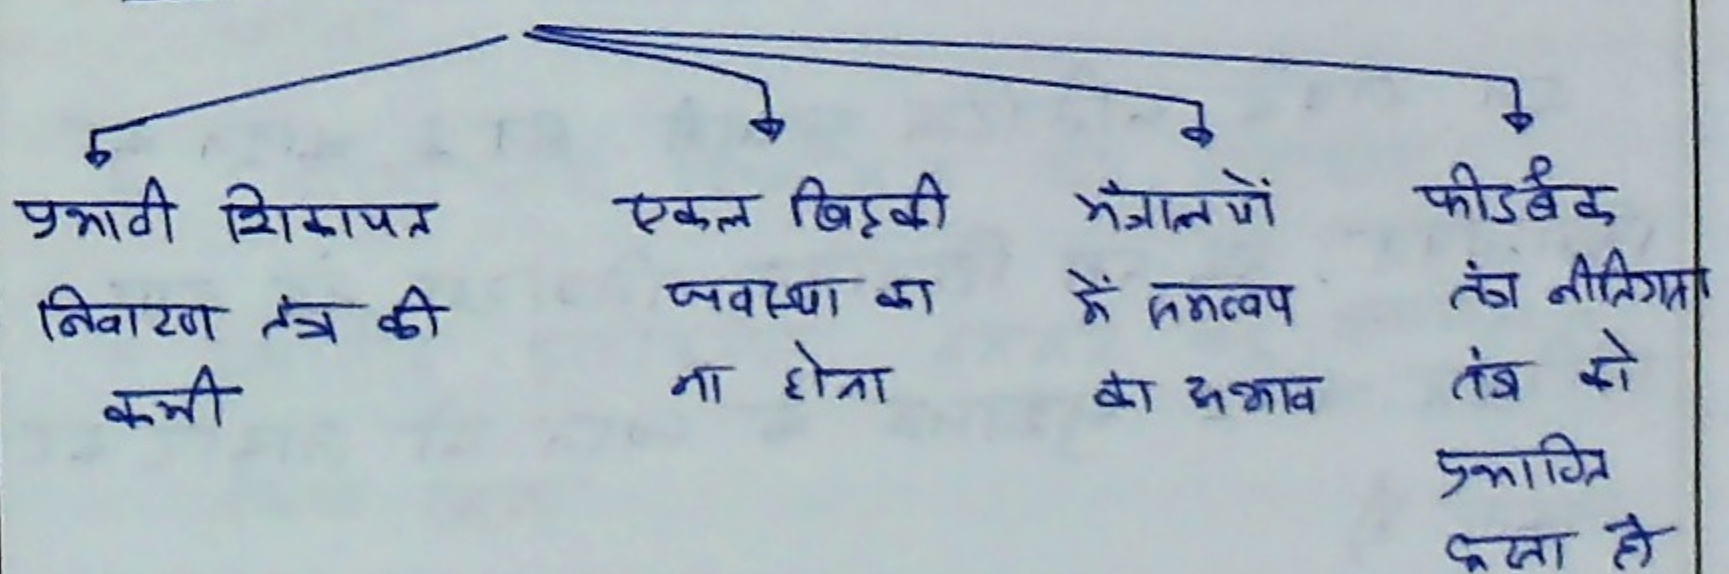 प्रभावी शिकायत
निवारण तंत्र की
कमी
एकल खिड़की
व्यवस्था का
ना होना
मंत्रालयों
में समन्वय
का अभाव
फीडबैक
तंत्र नीतिगत
तंत्र को
प्रभावित
करता हो